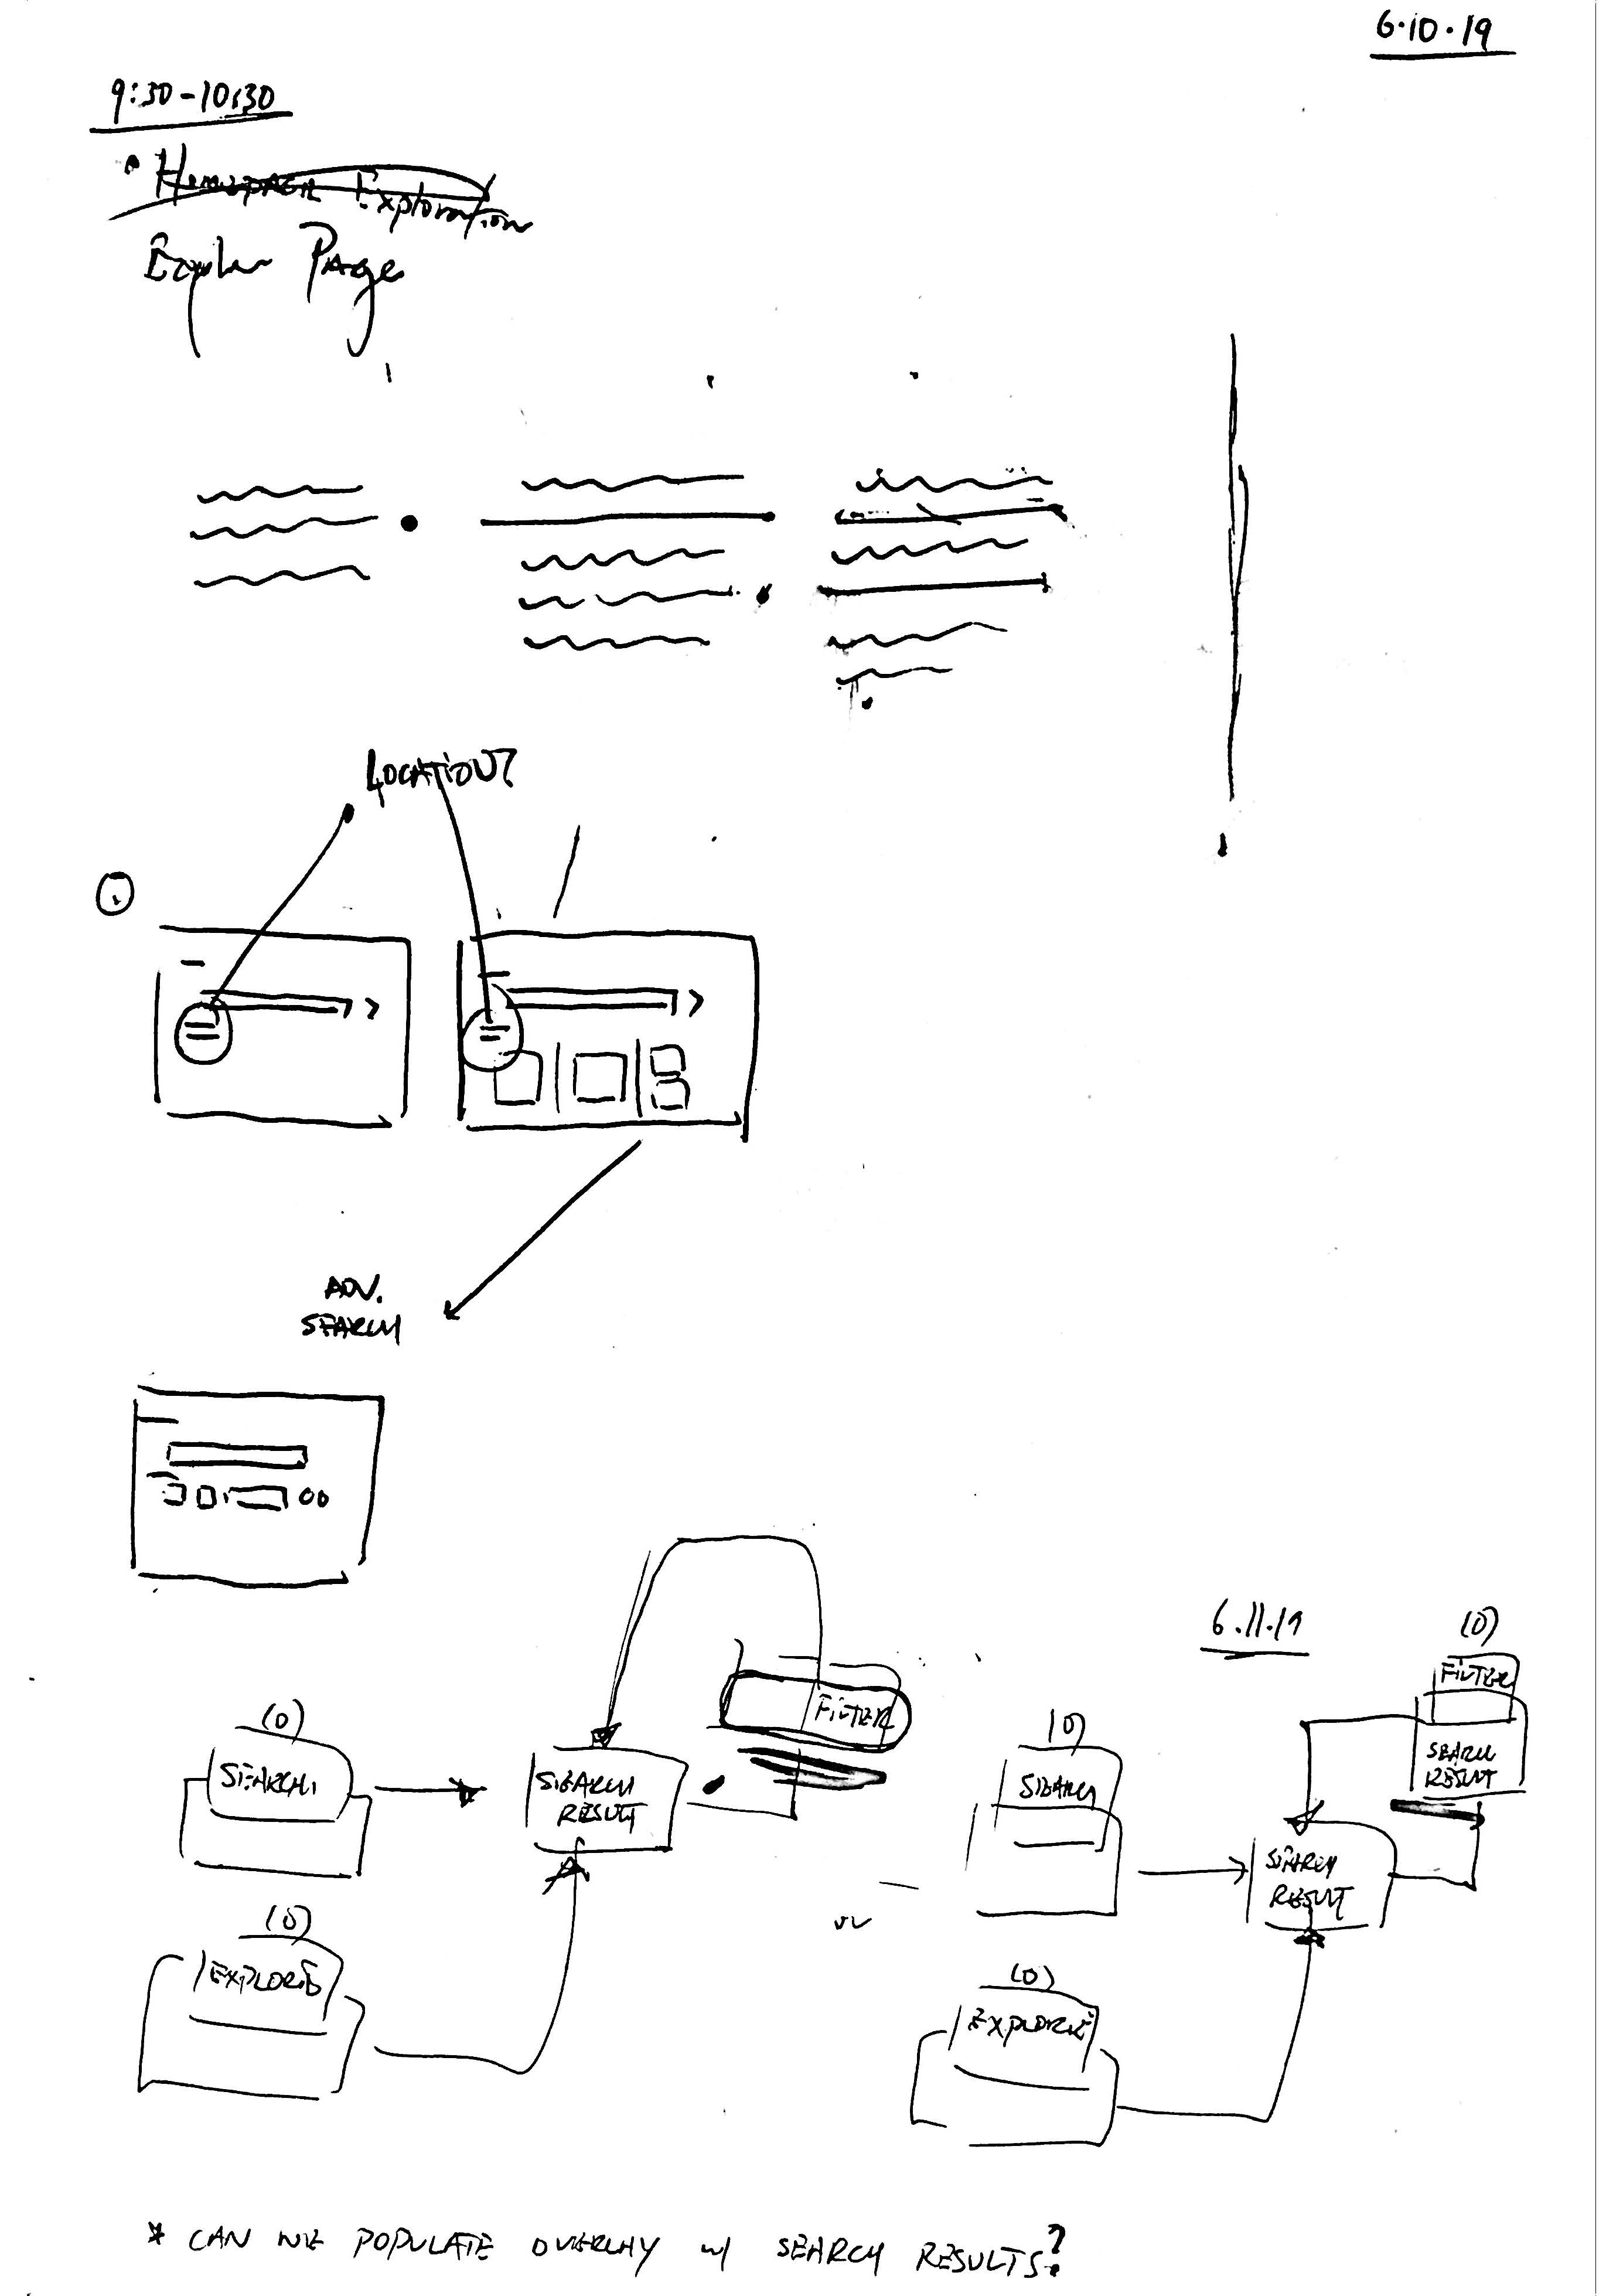 6·10·19
9:30-10:30
• Homepage Exploration
Explore Page
LOCATION?
1.
ADV.
SEARCH
6.11.19
(0)
FILTER
SEARCH
RESULT
FILTER
(0)
SEARCH
SEARCH
RESULT
(0)
SEARCH
SEARCH
RESULT
(0)
EXPLORE
or
(0)
EXPLORE
* CAN WE POPULATE OVERLAY w/ SEARCH RESULTS?